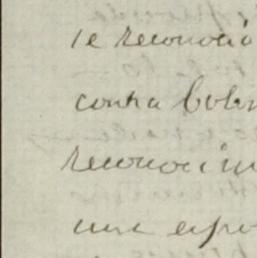 se reconocio
contra Col
reconoci
una espo